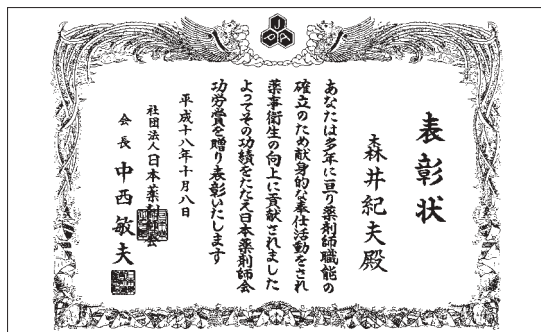 表彰状
森井紀夫殿
あなたは多年に亘り薬剤師職能の
確立のため献身的な奉仕活動をされ
薬事衛生の向上に貢献されました
よってその功績をたたえ日本薬剤師会
功労賞を贈り表彰いたします
平成十八年十月八日
社団法人日本薬剤師会
会長 中西敏夫